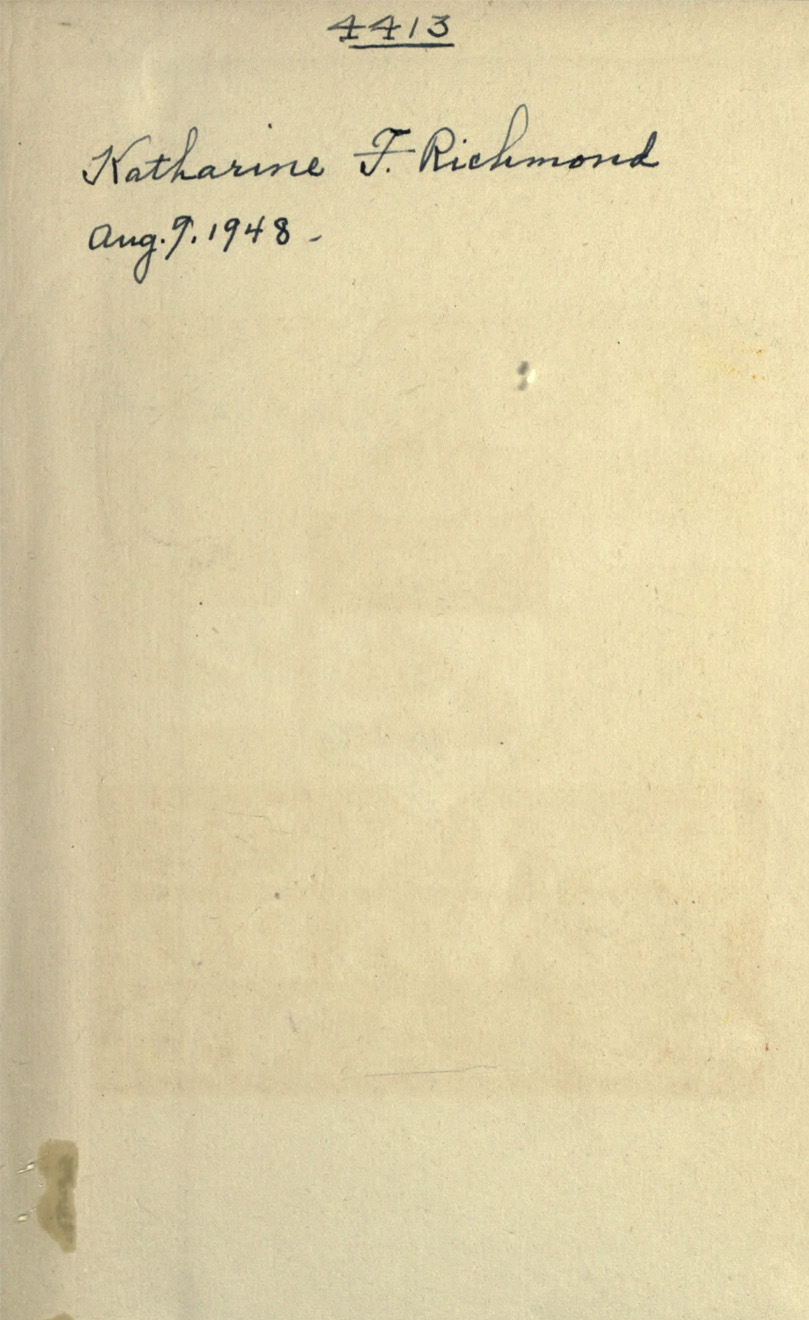 4413
Katharine F. Richmond
Aug. 9. 1948 -